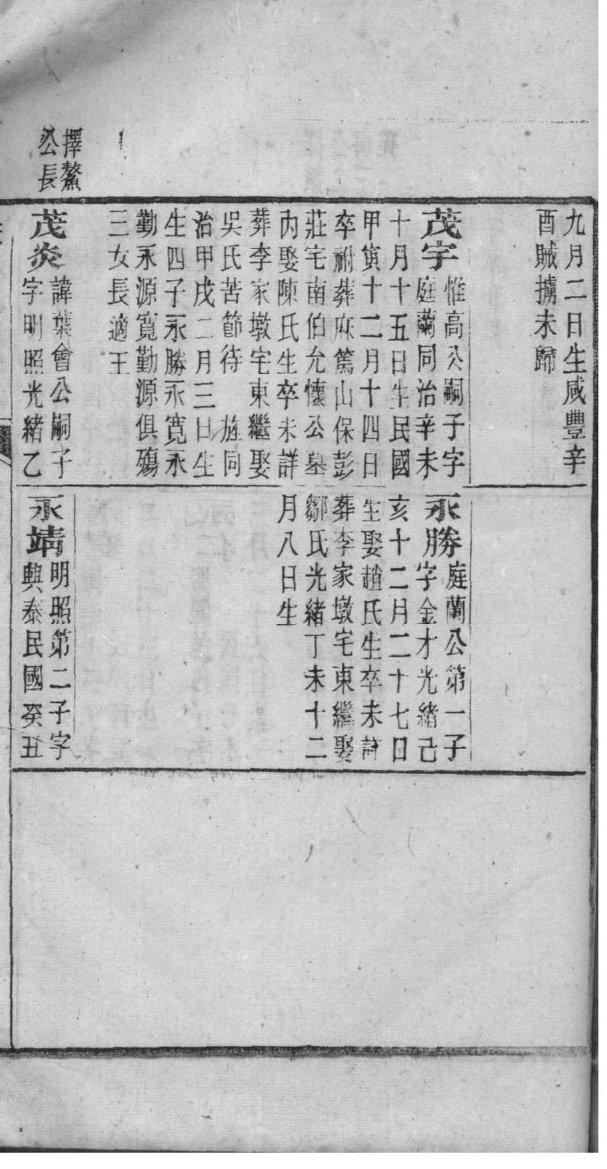 擇鰲
公長
九月二日生咸豐辛
酉賊擄未歸
茂宇
惟高公嗣子字
庭蘭同治辛未
十月十五日生民國
甲寅十二月十四日
卒祔葬麻篤山保彭
莊宅南伯允懷公墓
內娶陳氏生卒未詳
葬李家墩宅東繼娶
吳氏苦節待旌同
治甲戌二月三日生
生四子永勝永寬永
勤永源寬勤源俱殤
三女長適王
茂炎
諱葉會公嗣子
字明照光緒乙
永勝
庭蘭公第一子
字金才光緒己
亥十二月二十七日
生娶趙氏生卒未詳
葬李家墩宅東繼娶
鄒氏光緒丁未十二
月八日生
永靖
明照第二子字
興泰民國癸丑